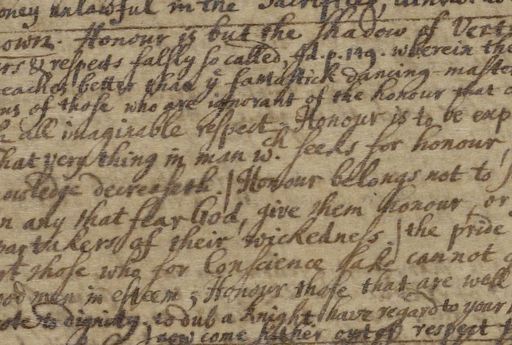 oney unlawful in the Sacrifice,
own. Honour is but the shadow of Vert
rs & respects falsly so called, Id. p. 149. wherein the
eaches better than yͤ fantastick dancing-maste
ns of those who are ignorant of the honour that c
all imaginable respect. Honour is to be exp
hat very thing in man wͨͪ seeks for honour,
nowledge decreaseth. | Honour belongs not to
n any that fear God, give them honour, or
partakers of their wickedness. | the pride
rt those who for Conscience sake cannot
ood men in esteem; Honour those that are well
ote to dignity. to dub a Knight. have regard to your h
come hither out of respect